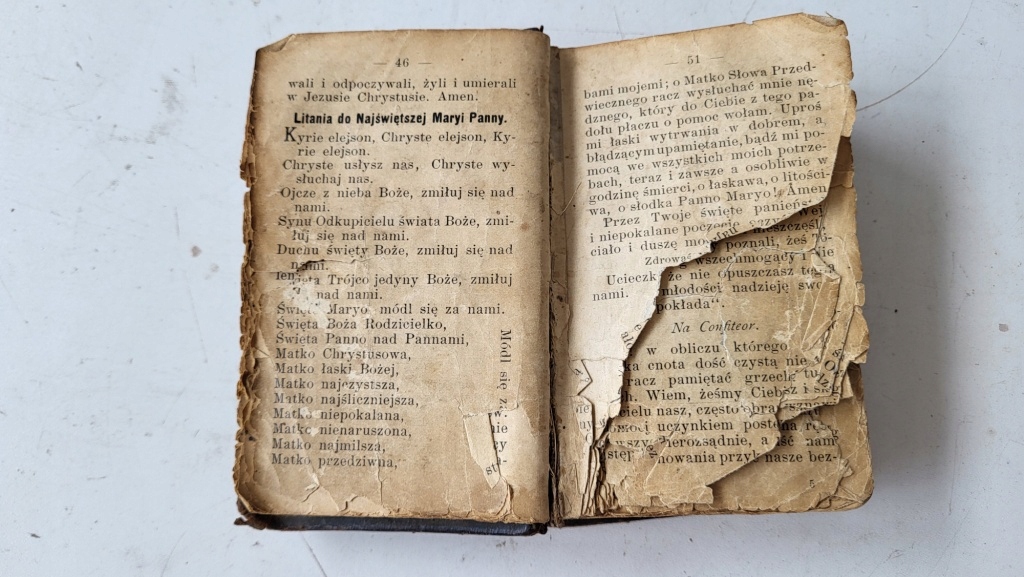 — 46 —
wali i odpoczywali, żyli i umierali
w Jezusie Chrystusie. Amen.
Litania do Najświętszej Maryi Panny.
Kyrie elejson, Chryste elejson, Ky-
rie elejson.
Chryste usłysz nas, Chryste wy-
słuchaj nas.
Ojcze z nieba Boże, zmiłuj się nad
nami.
Synu Odkupicielu świata Boże, zmi-
łuj się nad nami.
Duchu święty Boże, zmiłuj się nad
nami.
Trójco jedyny Boże, zmiłuj
nad nami.
Maryo módl się za nami.
Święta Boża Rodzicielko,
Święta Panno nad Pannami,
Matko Chrystusowa,
Matko łaski Bożej,
Matko najczystsza,
Matko najśliczniejsza,
Matko niepokalana,
Matko nienaruszona,
Matko najmilsza,
Matko przedziwna,
Módl się
— 51 —
bami mojemi; o Matko Słowa Przed-
wiecznego racz wysłuchać mnie nę-
dznego, który do Ciebie z tego pa-
dołu płaczu o pomoc wołam. Uproś
mi łaski wytrwania w dobrem, a
błądzącym upamiętanie, bądź mi po-
mocą we wszystkich moich potrze-
bach, teraz i zawsze a osobliwie w
godzinę śmierci, o łaskawa, o litości-
wa, o słodka Panno Maryo! Amen
Przez Twoje święte
i niepokalane
ciało i duszę poznali, żeś
Zdrowaś wszechmogący i nie
Ucieczki że nie opuszczasz
nami. młodości nadzieję
pokłada".
Na Confiteor.
w obliczu którego
cnota dość czystą nie
racz pamiętać
Wiem, żeśmy Ciebie i
nasz, często
uczynkiem
a
nasze bez-
5